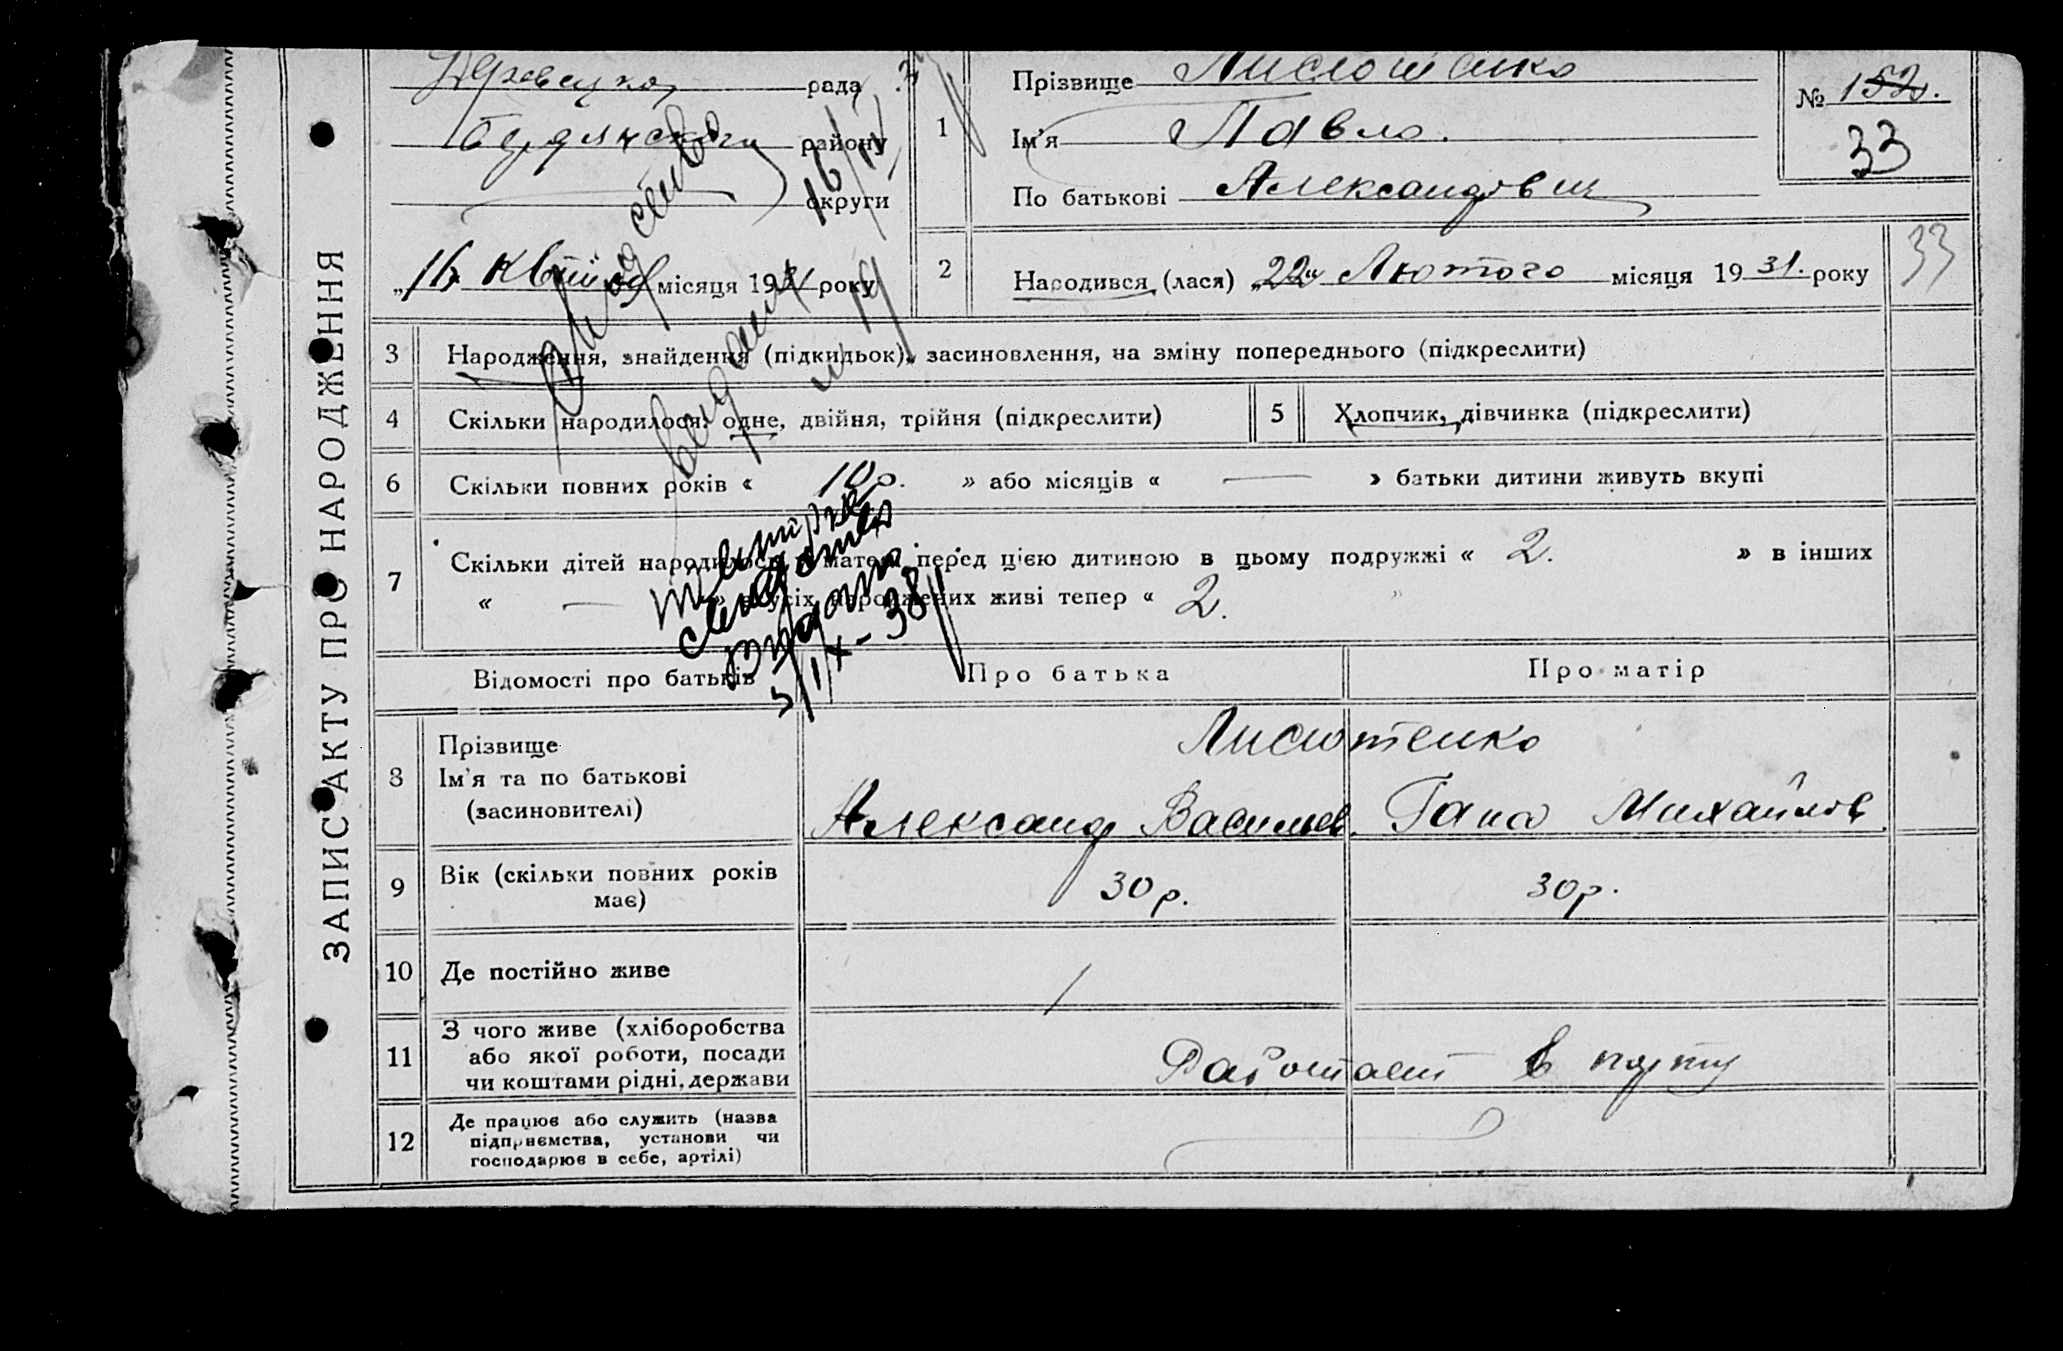 рада
району
округи
„16“ Квітня місяця 1931 року
1
Прізвище Лисютенко
Ім'я Павло.
По батькові Александрович
№ 152.
33
2
Народився (лася) „22“ Лютого місяця 19 31. року
33
3
Народження, знайдення (підкидьок), засиновлення, на зміну попереднього (підкреслити)
4
Скільки народилося: одне, двійня, трійня (підкреслити)
5
Хлопчик, дівчинка (підкреслити)
6
Скільки повних років « 10 р. » або місяців « — » батьки дитини живуть вкупі
7
Скільки дітей народилось у матері перед цією дитиною в цьому подружжі « 2. » в інших
« — » з усіх народжених живі тепер « 2. »
5/IX-38
Відомості про батьків
Про батька
Про матір
8
Прізвище
Ім'я та по батькові
(засиновителі)
Лисютенко
Александ Васильев. Гана Михайлов.
9
Вік (скільки повних років
має)
30 р.
30 р.
10
Де постійно живе
11
З чого живе (хліборобства
або якої роботи, посади
чи коштами рідні, держави
Работает в порту
12
Де працює або служить (назва
підприємства, установи чи
господарює в себе, артілі)
ЗАПИС АКТУ ПРО НАРОДЖЕННЯ